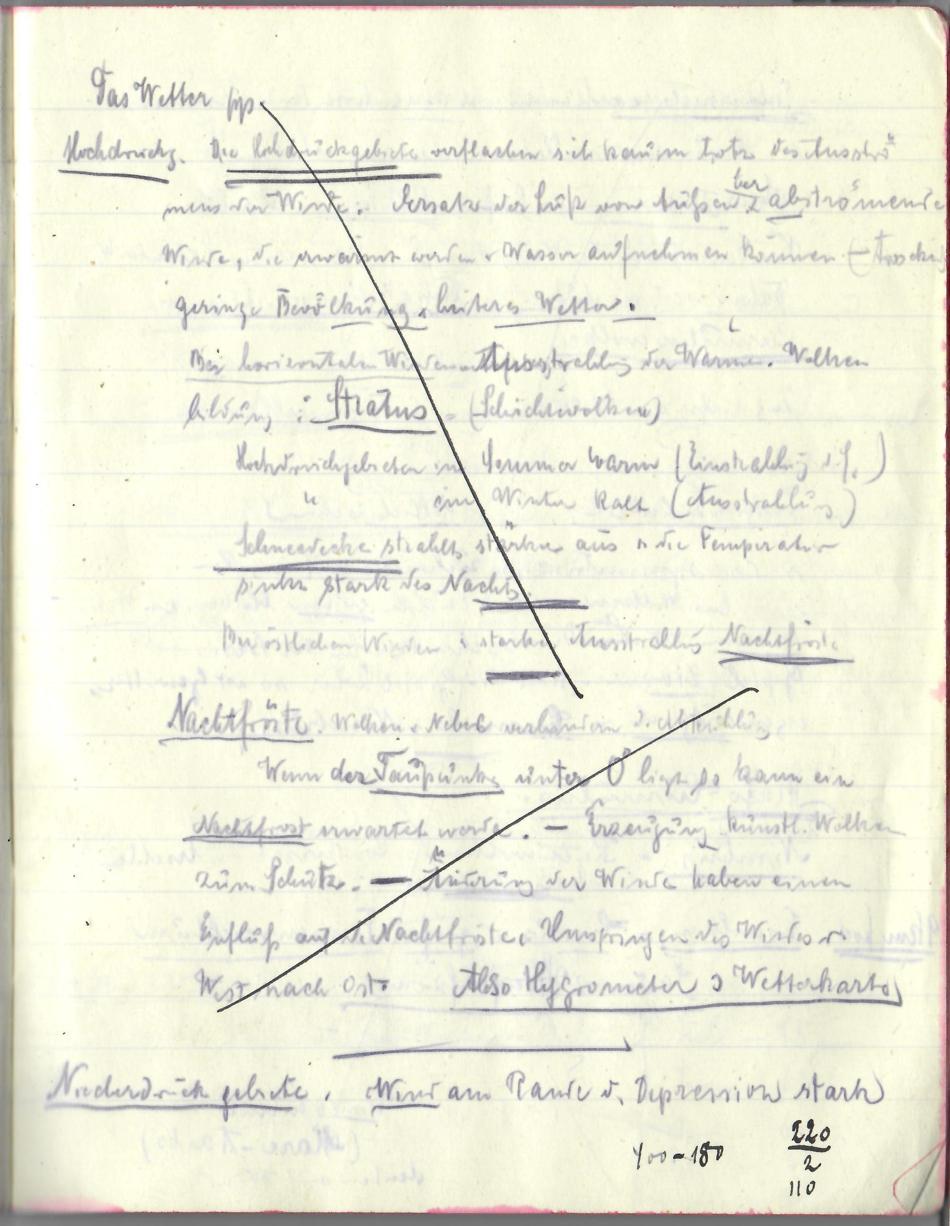 Das Wetter
Hochdruckg. Die Hochdruckgebiete verflachen sich kaum trotz des Ausströ
mens der Winde. Ersatz der Luft von Außen ber abströmende
Winde, die erwärmt werden u Wasser aufnehmen können (– trocken
geringe Bewölkung, heiteres Wetter.
Bei horizontalen Winden Ausstrahlung der Wärme. Wolken
bildung : Stratus = (Schichtwolken)
Hochdruckgebieten im Sommer warm (Einstrahlung)
" im Winter kalt (Ausstrahlung)
Schneedecke strahlt stärker aus u die Temperatur
sinkt stark des Nachts.
Bei östlichen Winden starken Ausstrahlung Nachtfröste
Nachtfröste. Wolken u Nebel verhindern
Wenn der Taupunkt unter 0° ligt so kann ein
Nachtfrost erwartet werde. – Erzeugung künstl. Wolken
zum Schutz. – Änderung der Winde haben einen
Einfluß auf die Nachtfröste. Umspringen des Windes v.
West nach Ost. Also Hygrometer u Wetterkarte
Niederdruckgebiete. Wind am Rande d. Depression stark
400–180
220
2
110